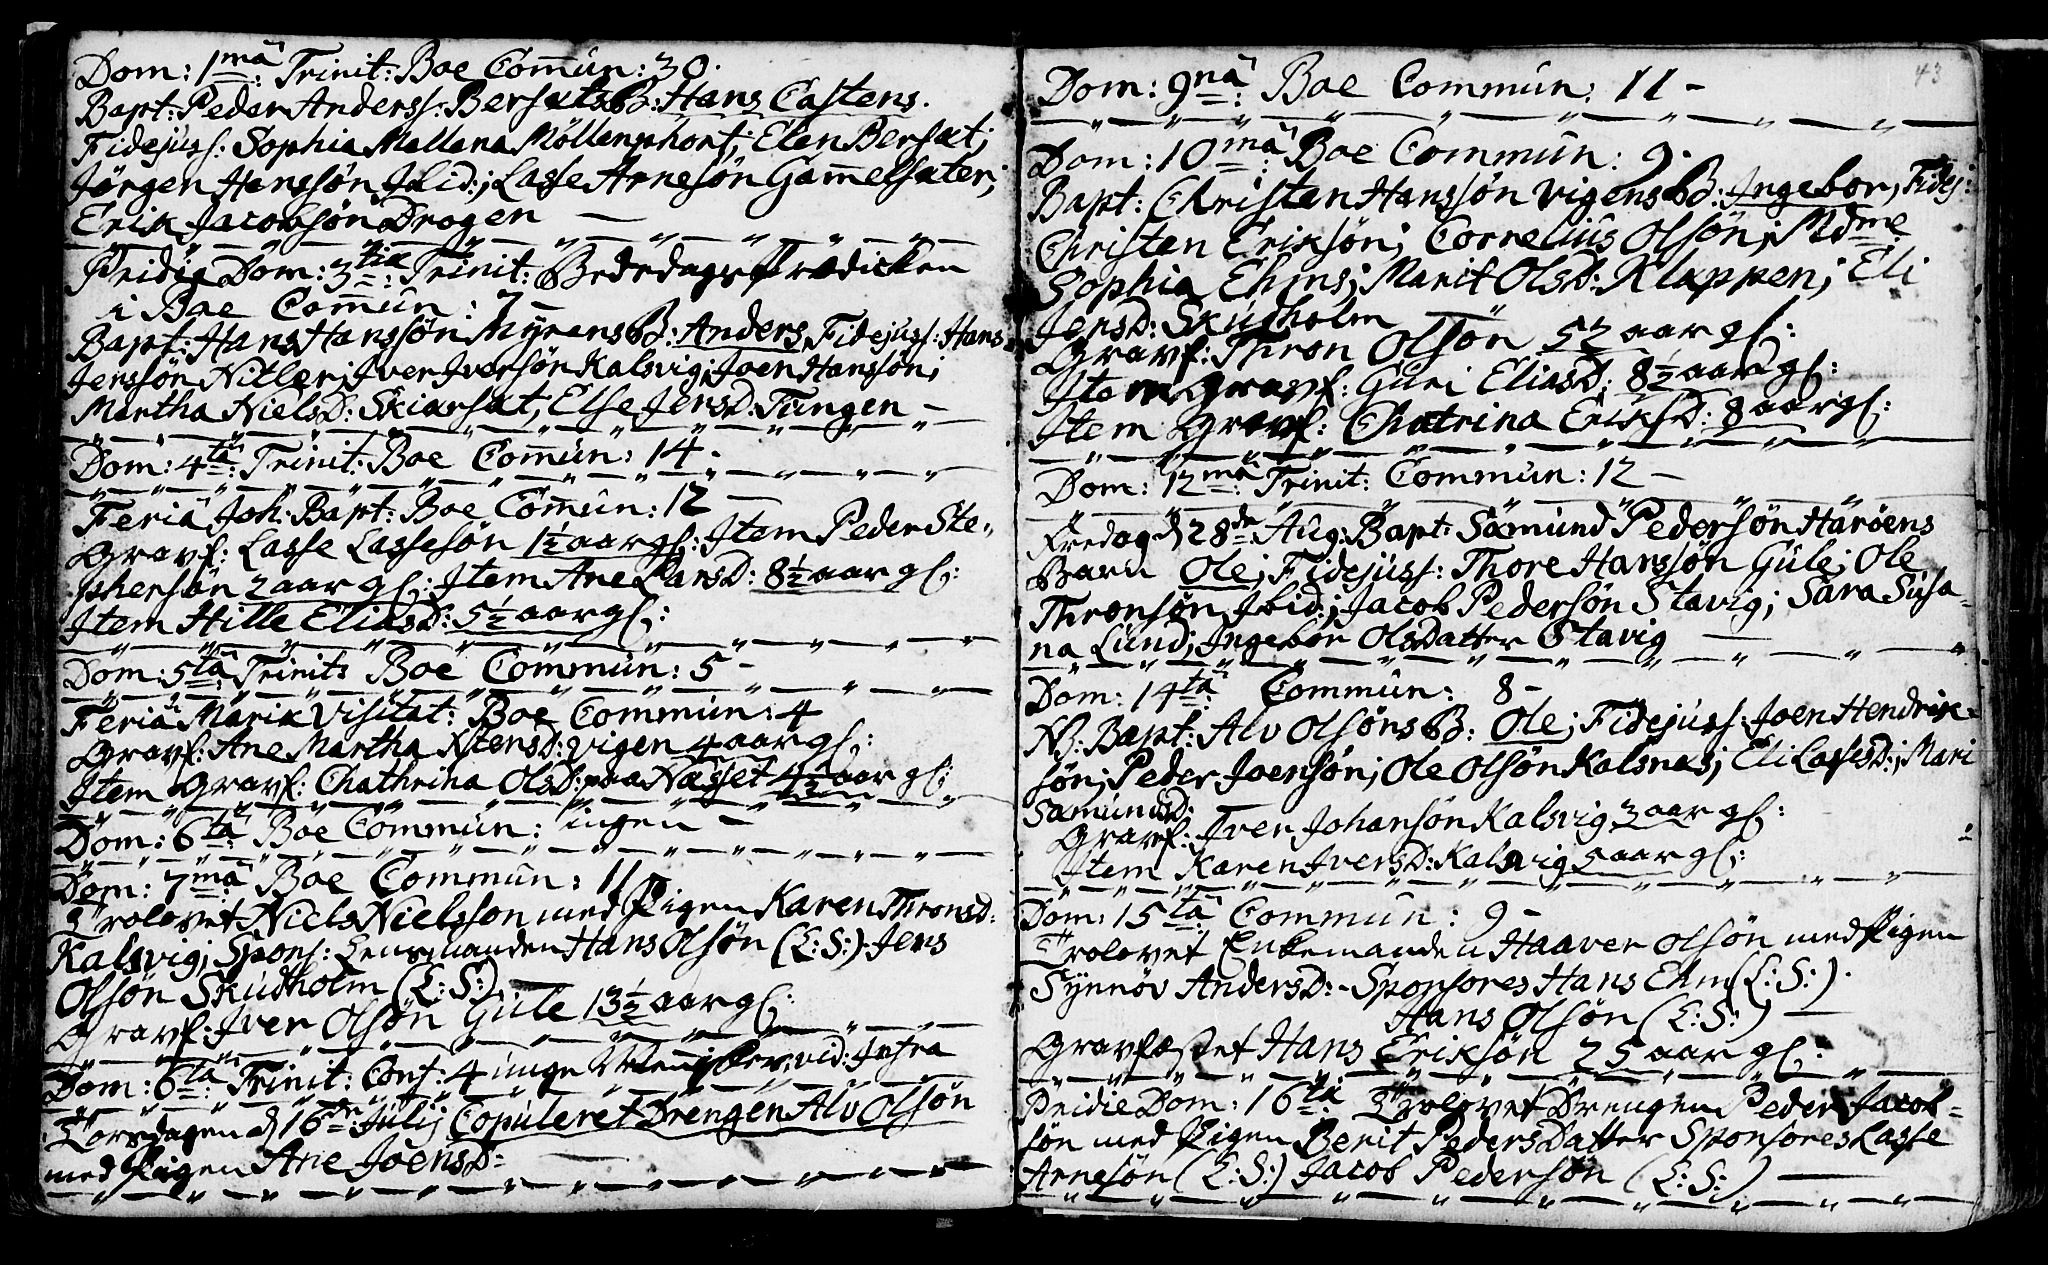 Dom: 1mâ Trinit: Boe Comūn: 30.
Bapt: Peder Anderss: Bersæts B: Hans Castens.
Fidejuss: Sophia Mallena Möllenphort; Elen Bersæt;
Jørgen Hanssön Ibid:; Lasse Arnesön Gamelsæter;
Erik Jacobsön Drogen —
Pridiæ Dom: 3tiæ Trinit: Bededags Prædicken
i Boe Comūn: 7 —
Bapt: Hans Hanssön Myrens B: Anders, Fidejuss: Hans
Jenssön Nitler; Iver Iversön Kalsvig; Joen Hanssön;
Martha NielsD: Skiarsæt; Else JensD: Tungen —
Dom: 4tâ Trinit: Boe Comūn: 14 -
Feriâ Joh: Bapt: Boe Comūn: 12 —
Gravf: Lasse Lassesön 1½ aar gl: Item Peder Ste-
phensön 2 aar gl; Item Ane LarsD: 8½ aar gl:
Item Hille EliasD: 5½ aar gl:
Dom: 5tâ Trinit: Boe Commūn: 5 -
Feriâ Mariæ Visitat: Boe Commun: 4
Gravf: Ane Martha NilensD: Vigen 4 aar gl:
Item Gravf: Chathrina OlsD: paa Næsset 4½ aar gl:
Dom: 6tâ Boe Commūn: ingen —
Dom: 7mâ Boe Commūn: 11
Trolovet Niels Nielsson med Pigen Karen ThronsD:
Kalsvig; Spons: Lensmanden Hans Olsön (L:S:) Jens
Olsön Skudholm (L:S:) —
Gravf: Iver Olsön Gule 13½ aar gl:
Dom: 6tâ Trinit: Conf: 4 unge Mennisker, vid: Infra
Torsdagen d 16de Julij Copuleret Drengen Alv Olsön
med Pigen Ane JoensD: —
43
Dom: 9nâ Boe Commūn: 11 -
Dom: 10mâ Boe Commūn: 9.
Bapt: Christen Hanssön Vigens B: Ingebor, Fidej:
Christen Eriksön; Cornelius Olsön; Mdme
Sophia Ehms; Marit OlsD: Klappen; Eli
JensD: Skudholm —
Gravf: Thron Olsön 52 aar gl:
Item Gravf: Guri EliasD: 8½ aar gl:
Item Gravf: Chatrina EriksD: 8 aar gl:
Dom: 12mâ Trinit: Commūn: 12 —
Fredag d 28de Aug: Bapt: Sämund Pedersön Haröens
Barn Ole; Fidejuss: Thore Hanssön Gule; Ole
Thronsön Ibid; Jacob Pedersön Stavig; Sara Susa-
na Lund; Ingebor Olsdatter Stavig
Dom: 14tâ Commūn: 8 -
NB: Bapt: Alv Olsöns B: Ole; Fidejuss: Joen Hendrik-
sön; Peder Joensön; Ole Olsön Kalsnæs; Eli LassesD:; Mari
SamundsD:
Gravf: Iver Johansön Kalsvig 3 aar gl:
Item Karen IversD: Kalsvig 5 aar gl:
Dom: 15tâ Commūn: 9 -
Trolovet Enkemanden Haaver Olsön med Pigen
Synnöv AndersD: - Sponsores Hans Ehm (L:S:).
Hans Olsön (L:S:) —
Gravfæstet Hans Eriksön 25 aar gl:
Pridie Dom: 16tâ Trolovet Drengen Peder Jacob-
sön med Pigen Berit PedersDatter Sponsores Lasse
Arnesön (L:S:) Jacob Pedersön (L:S:) —